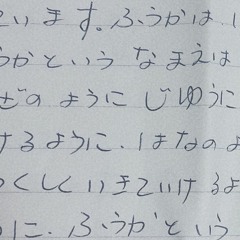 います。ふうかは
うかという なまえは
ぜのように じゆうに
けるように、はなのよ
つくしくいきていけるよ
に、ふうかという